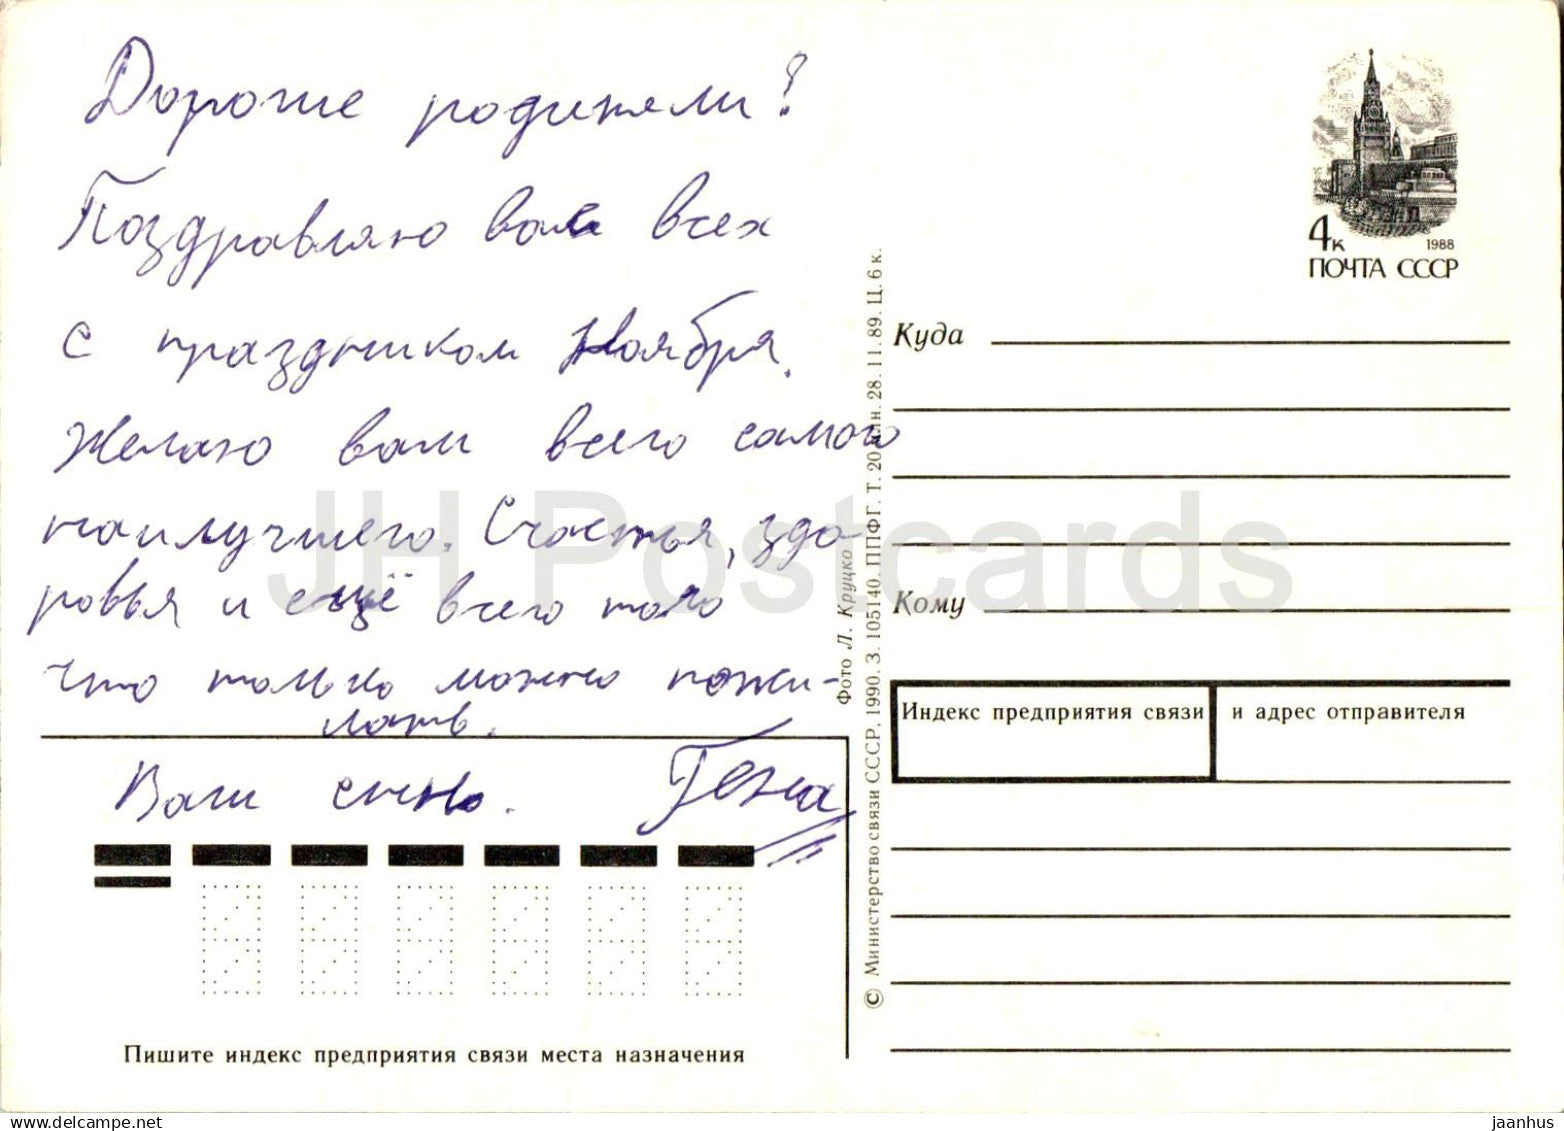 Дорогие родители!
Поздравляю вас всех
с праздником Ноября.
Желаю вам всего самого
наилучшего. Счастья, здо-
ровья и ещё всего того
что только можно пожи-
лать.
Ваш сынь. Гена
4к 1988
ПОЧТА СССР
Куда
Кому
Индекс предприятия связи и адрес отправителя
Фото Л. Круцко
© Министерство связи СССР, 1990. З. 105140. ППФГ. Т. 20 млн. 28. 11. 89. Ц. 6 к.
Пишите индекс предприятия связи места назначения
JH Postcards
www.delcampe.net
jaanhus